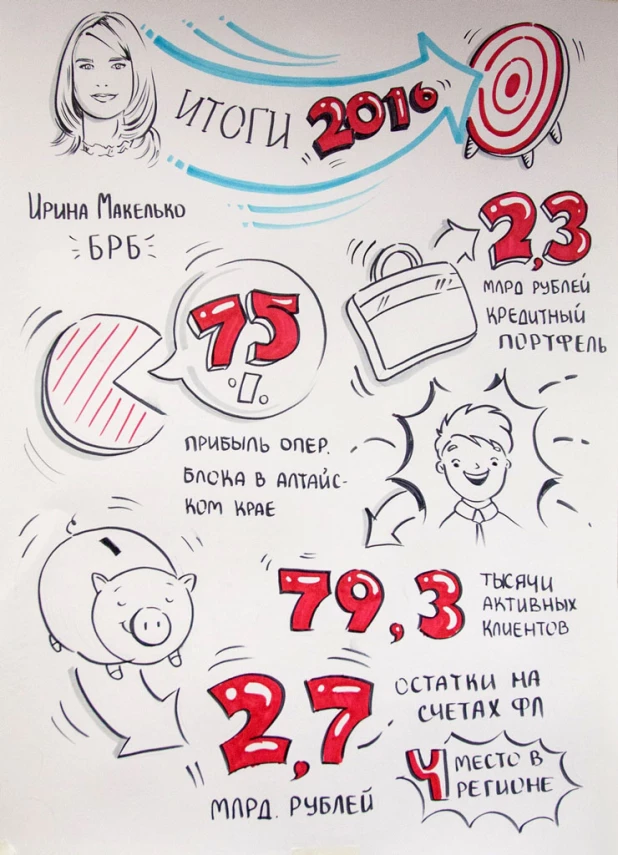 ИТОГИ 2016
ИРИНА МАКЕЛЬКО
БРБ
2,3
МЛРД РУБЛЕЙ
КРЕДИТНЫЙ
ПОРТФЕЛЬ
75
%
ПРИБЫЛЬ ОПЕР.
БЛОКА В АЛТАЙС-
КОМ КРАЕ
79,3
ТЫСЯЧИ
АКТИВНЫХ
КЛИЕНТОВ
2,7
МЛРД. РУБЛЕЙ
ОСТАТКИ НА
СЧЕТАХ ФЛ
4 МЕСТО В
РЕГИОНЕ